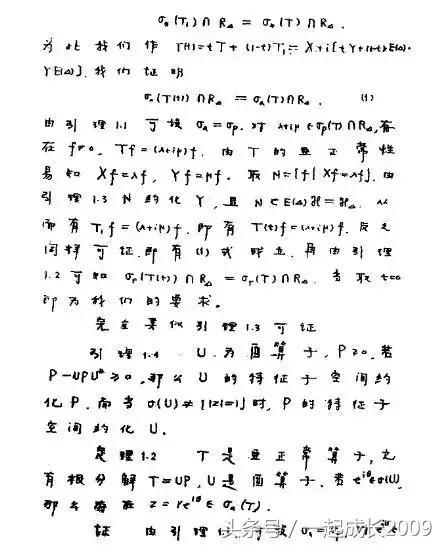 σₐ(T₁)∩R_Δ = σₐ(T)∩R_Δ.
为此我们作 T(t)=tT+(1-t)T₁= X+i[tY+(1-t)E(Δ)·
YE(Δ)]. 我们证明
σₐ(T(t))∩R_Δ = σₐ(T)∩R_Δ. (1)
由引理1.1 可换 σₐ=σₚ. 对 λ+iμ∈σₚ(T)∩R_Δ, 存
在 f≠0, Tf=(λ+iμ)f. 由 T 的亚正常性
易知 Xf=λf, Yf=μf. 取 N={f|Xf=λf}. 由
引理1.3 N 约化 Y, 且 N⊂E(Δ)ℋ=ℋ_Δ. 从
而有 T₁f=(λ+iμ)f. 即有 T(t)f=(λ+iμ)f. 反之
同样可证. 即有(1)式成立. 再由引理
1.2 可知 σᵣ(T(t))∩R_Δ=σᵣ(T)∩R_Δ. 当取 t=0
即为我们的要求.
完全类似引理1.3可证
引理1.4 U 为酉算子, P≥0, 若
P-UPU*≥0, 那么 U 的特征子空间约
化 P. 而当 σ(U)≠{|z|=1}时, P 的特征子
空间约化 U.
定理1.2 T 是亚正常算子, 它
有极分解 T=UP, U 是酉算子. 若 e^{iθ}∈σ(U),
那么存在 z=re^{iθ}∈σₐ(T).
证 由引理
头条号／一起成长2009